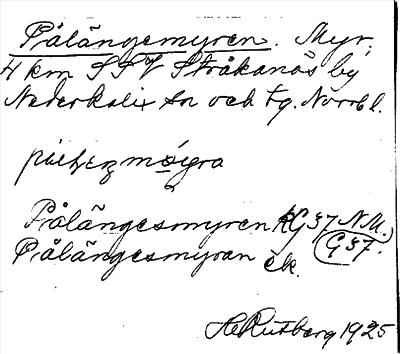 Pålängemyren. Myr,
4 km SSV Stråkanäs by
Nederkalix sn och tg. Norrb l.
Pålängesmyren KG37 N.M.
Pålängesmyran ek. G37.
H Rutberg 1925